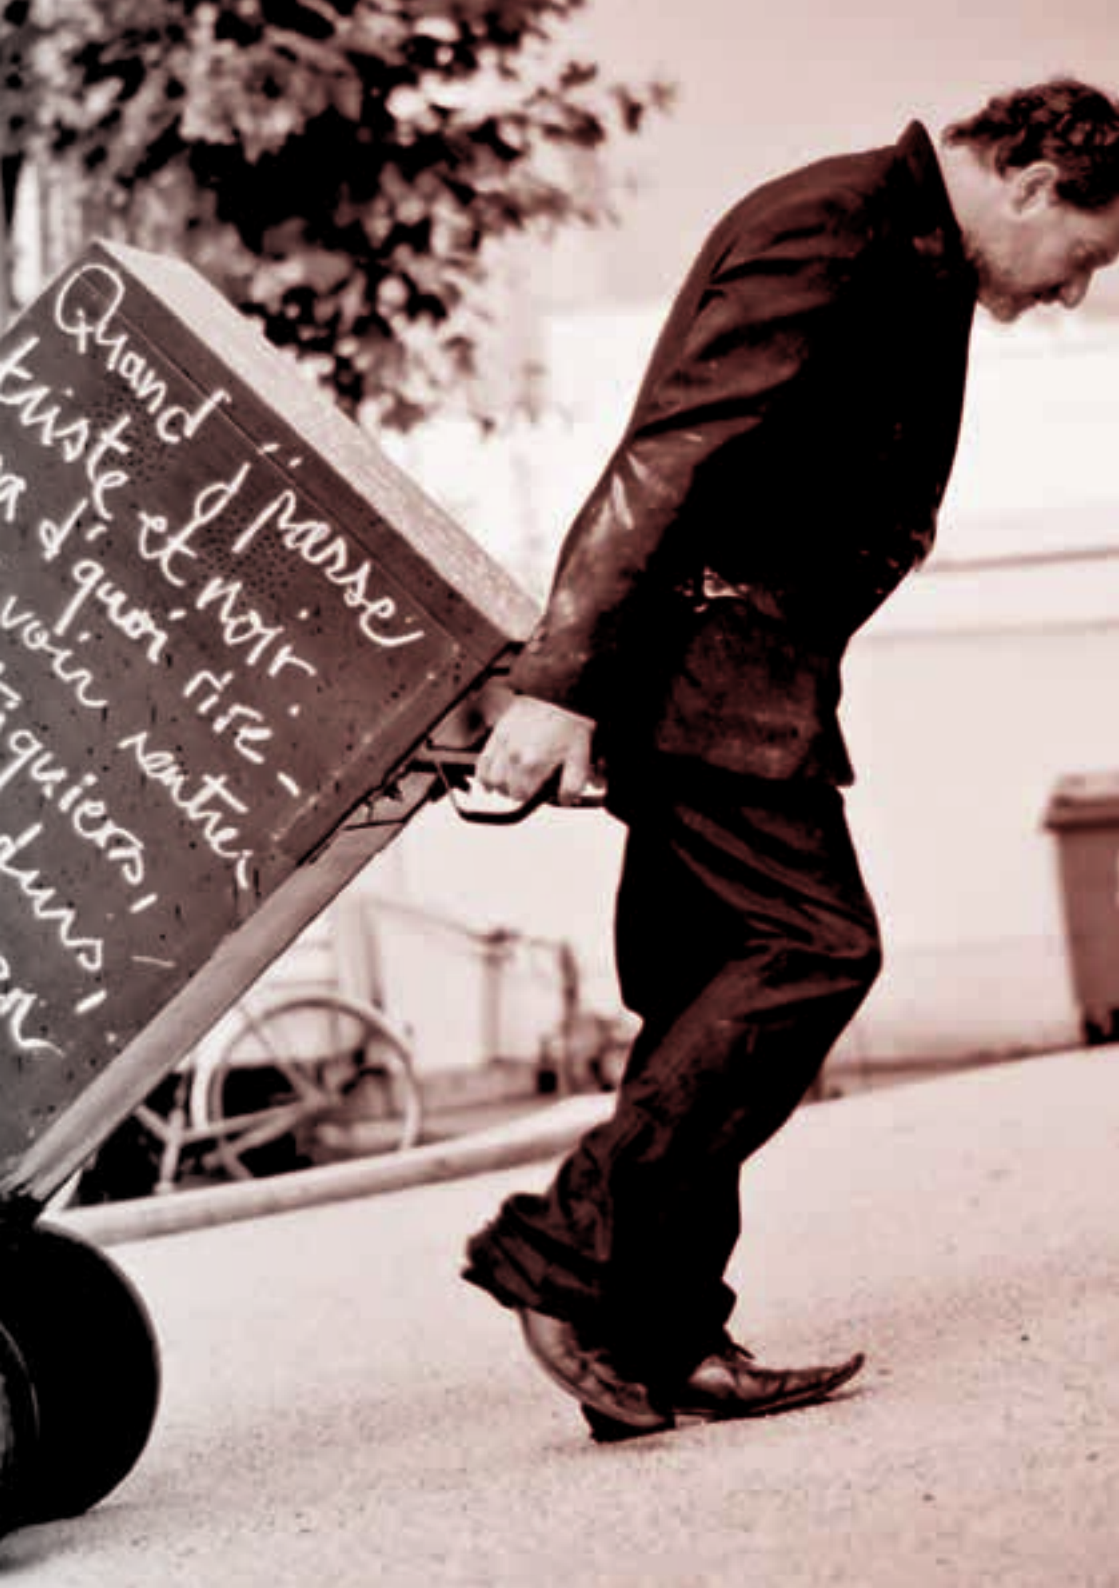 Quand j'passe
triste et noir.
a d'quoi rire -
voir rentrer
iquiers,
durs,